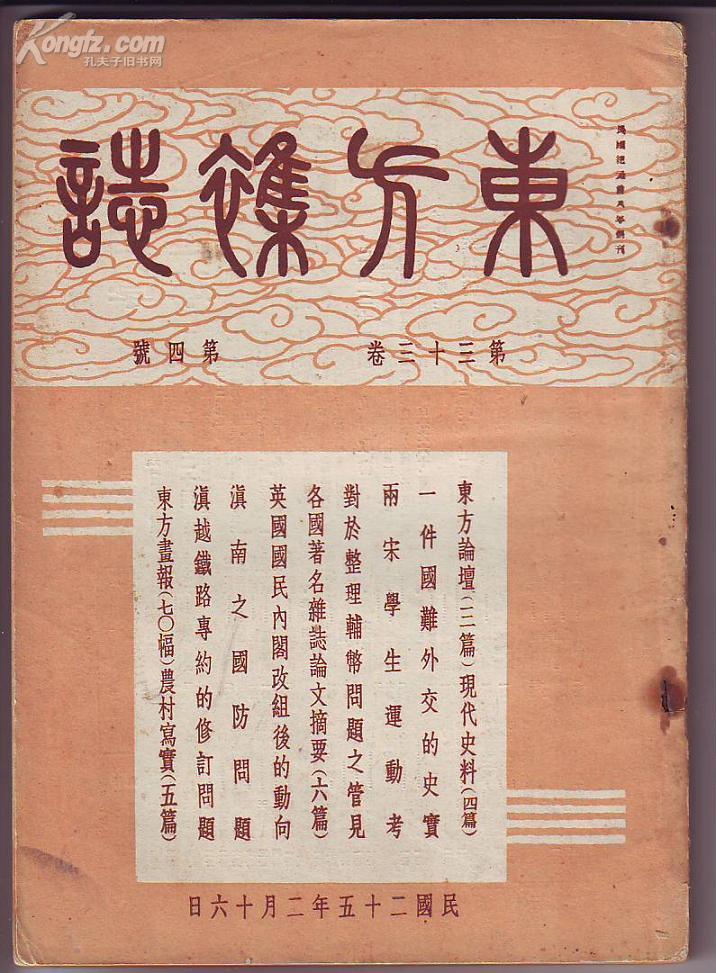 Kongfz.com
孔夫子旧书网
民國紀元前八年創刊
東方雜誌
第三十三卷 第四號
東方論壇（三篇）現代史料（四篇）
一件國難外交的史實
兩宋學生運動考
對於整理輔幣問題之管見
各國著名雜誌論文摘要（六篇）
英國國民內閣改組後的動向
滇南之國防問題
滇越鐵路專約的修訂問題
東方畫報（七〇幅）農村寫實（五篇）
民國二十五年二月十六日